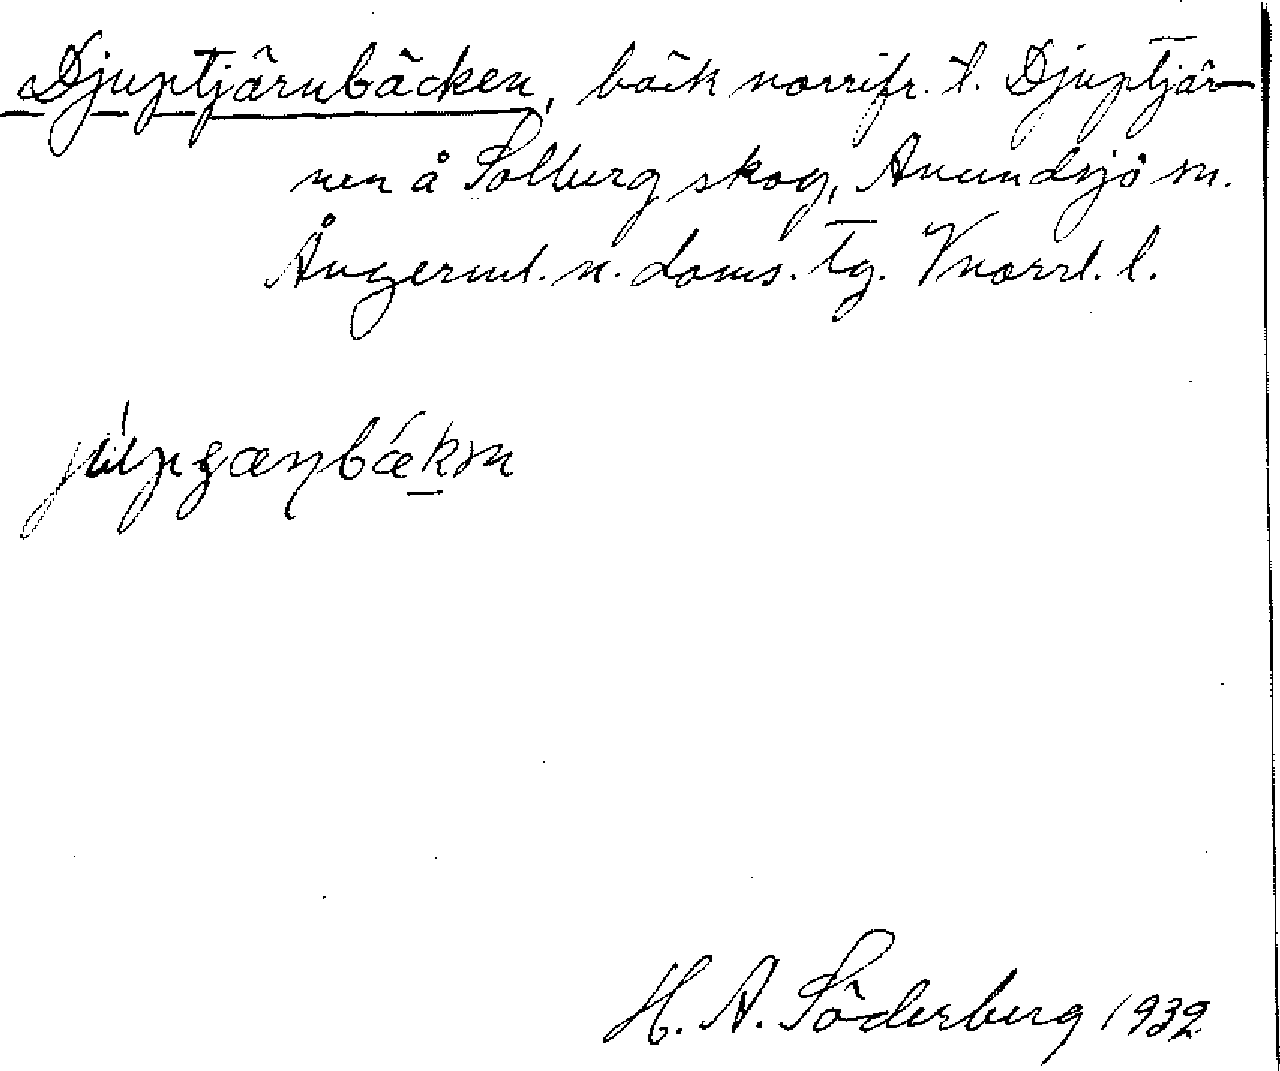 Djuptjärnbäcken, bäck norrifr. t. Djuptjär-
nen å Solberg skog, Anundsjö sn.
Ångerml. n. doms. tg. Vnorrl. l.
H. A. Söderberg 1932